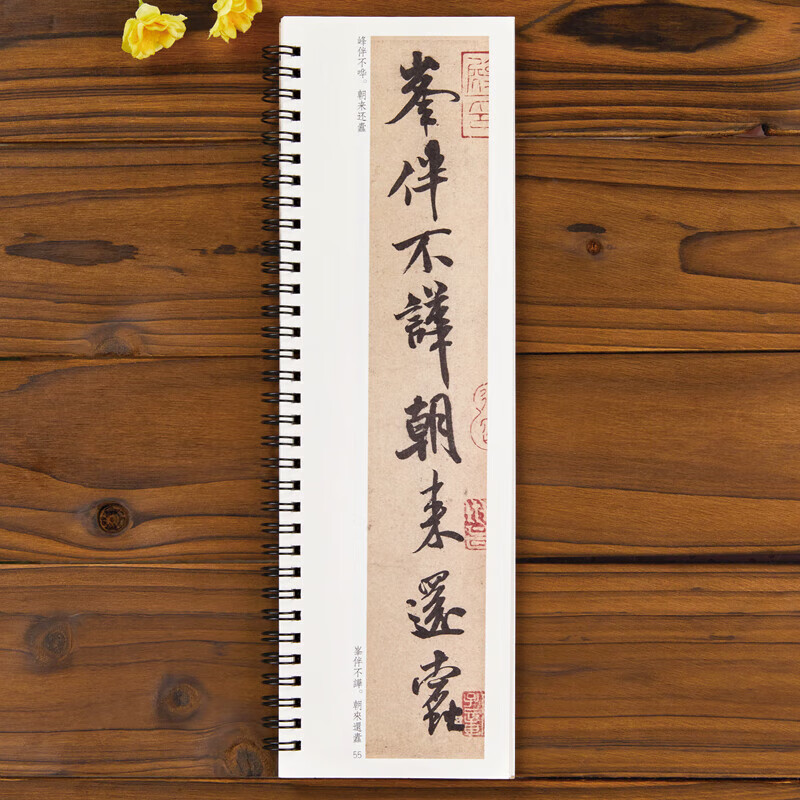 峯伴不譁朝来還蠹
峰伴不哗。朝来还蠹
峯伴不譁。朝來還蠹
55